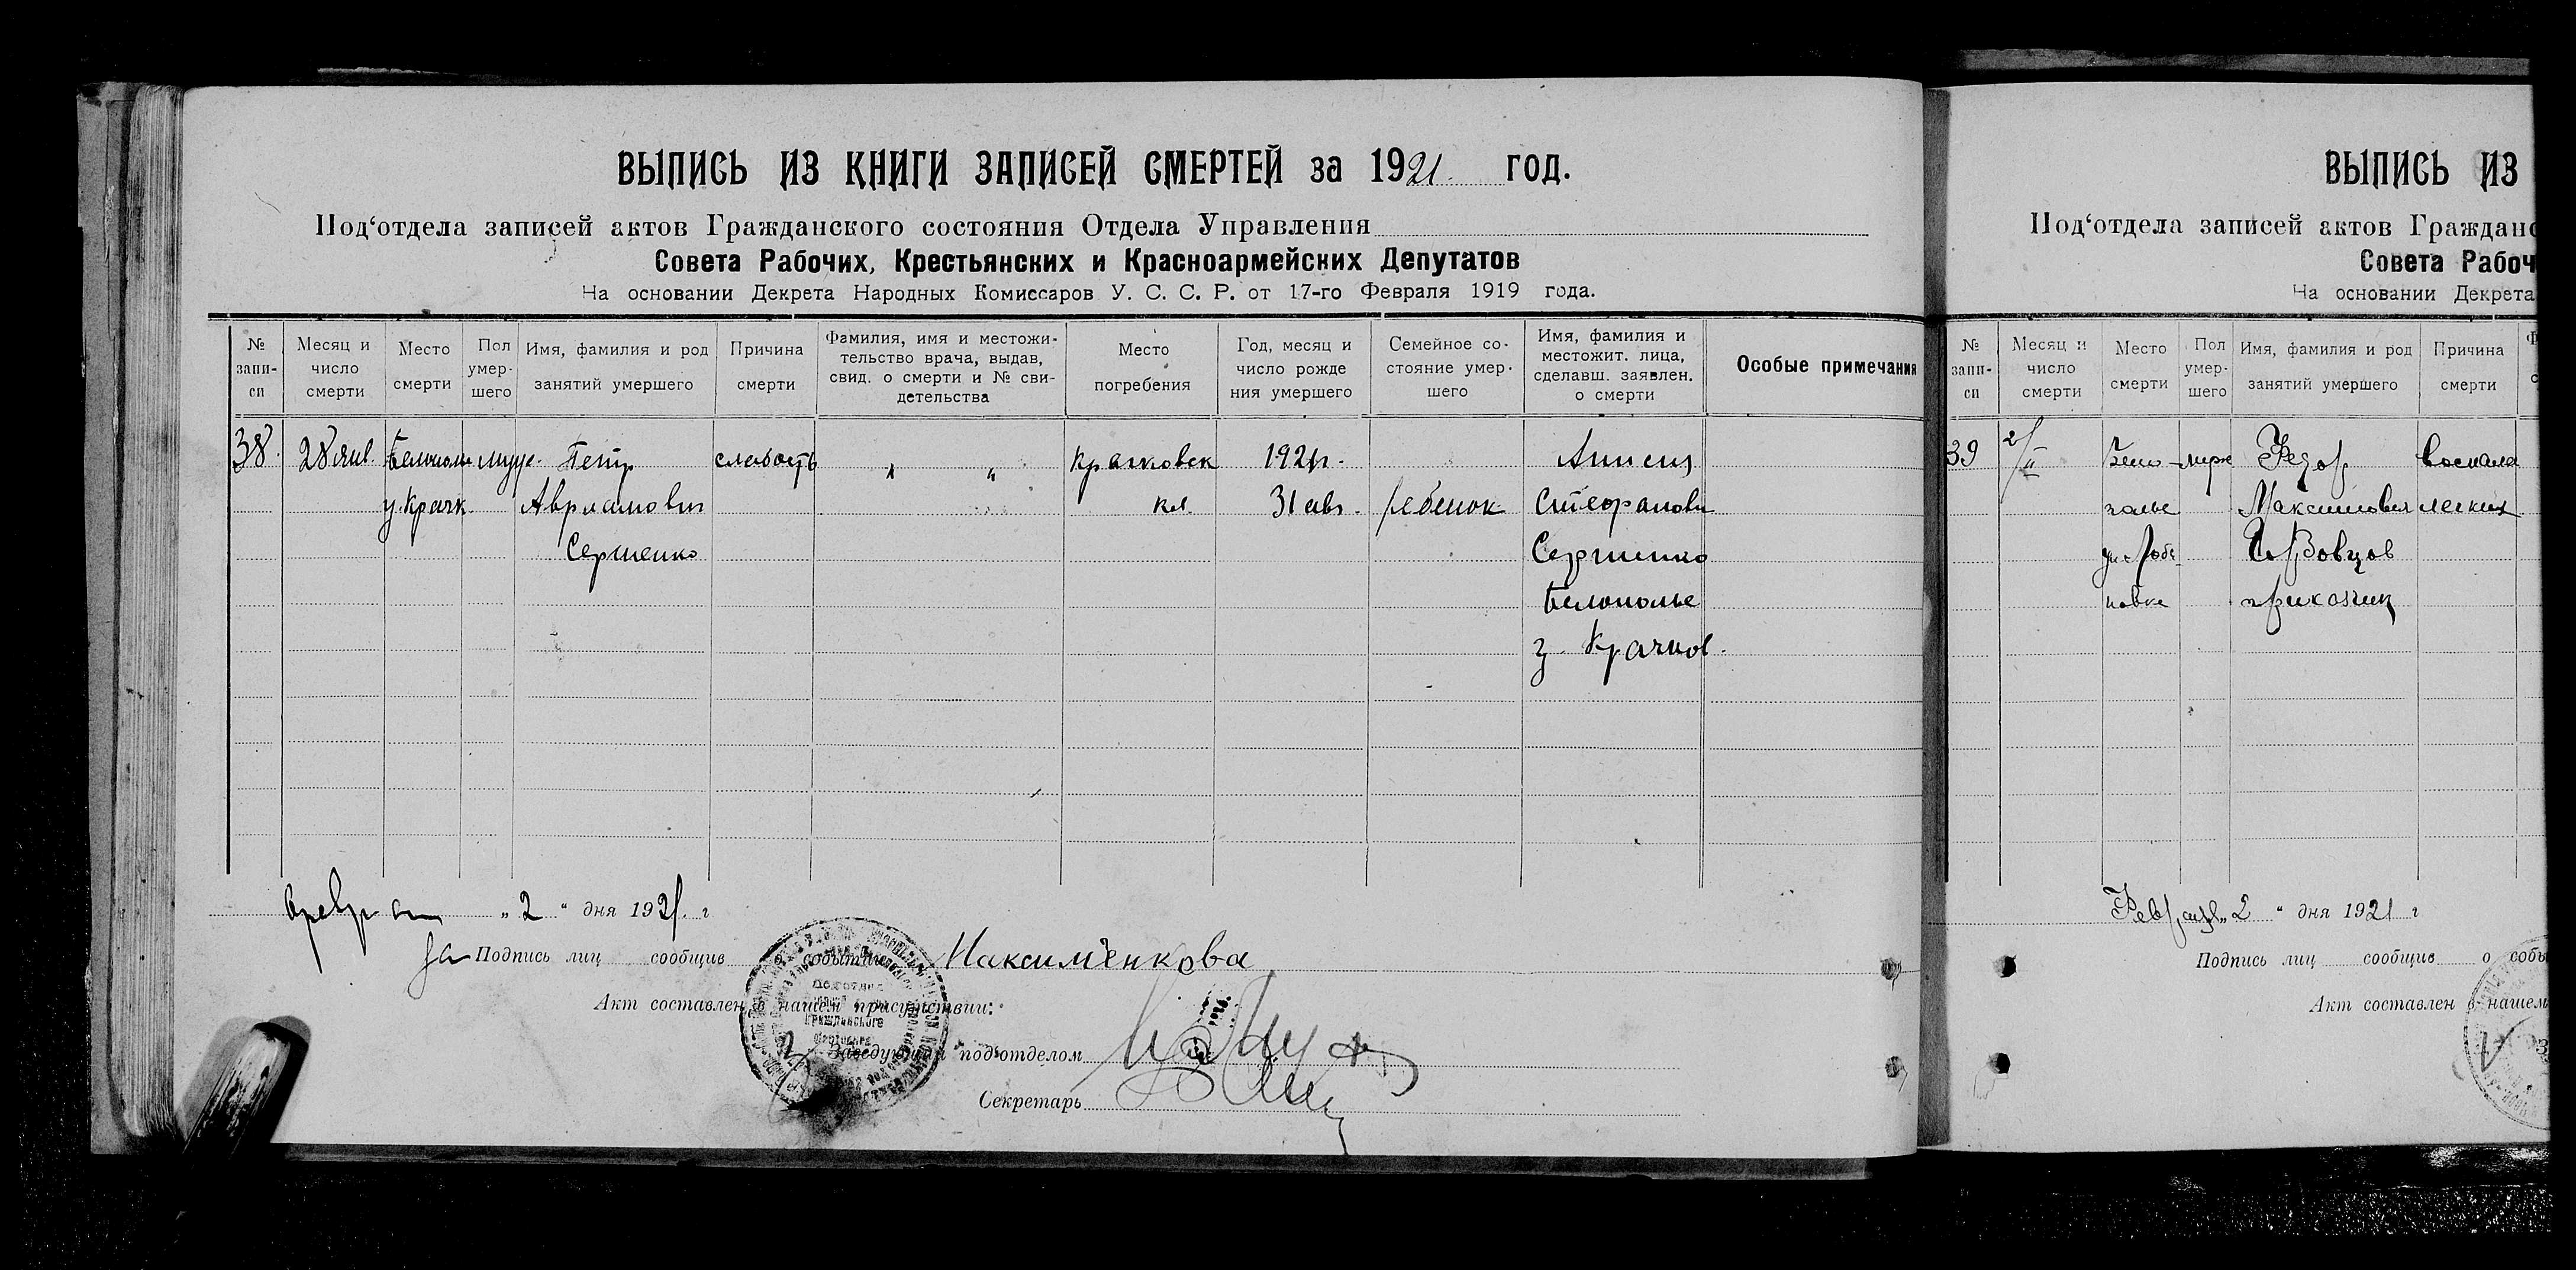 ВЫПИСЬ ИЗ КНИГИ ЗАПИСЕЙ СМЕРТЕЙ за 1921 год.
Под‘отдела записей актов Гражданского состояния Отдела Управления
Совета Рабочих, Крестьянских и Красноармейских Депутатов
На основании Декрета Народных Комиссаров У. С. С. Р. от 17-го Февраля 1919 года.
№ запи-
си
Месяц и
число
смерти
Место
смерти
Пол
умер-
шего
Имя, фамилия и род
занятий умершего
Причина
смерти
Фамилия, имя и местожи-
тельство врача, выдав,
свид. о смерти и № сви-
детельства
Место
погребения
Год, месяц и
число рожде
ния умершего
Семейное со-
стояние умер-
шего
Имя, фамилия и
местожит. лица,
сделавш. заявлен.
о смерти
Особые примечания
38.
28 янв.
у. Крачк.
Петр
Сергиенко
слабость
" "
кл.
1921г.
31 авг.
ребенок
Сергиенко
Белополье
Крачков.
" 2 " дня 1921. г
за Подпись лиц сообщив о событии Максименкова
Акт составлен в нашем присутствии:
Заведующий под‘отделом
Секретарь
ВЫПИСЬ ИЗ
Под‘отдела записей актов Гражданс
Совета Рабоч
На основании Декрета
№
запи-
си
Месяц и
число
смерти
Место
смерти
Пол
умер-
шего
Имя, фамилия и род
занятий умершего
Причина
смерти
39
2/II
Бело-
полье
Федор
Максимович
Воспале
легких
" 2 " дня 1921 г
Подпись лиц сообщив о собы
Акт составлен в нашем